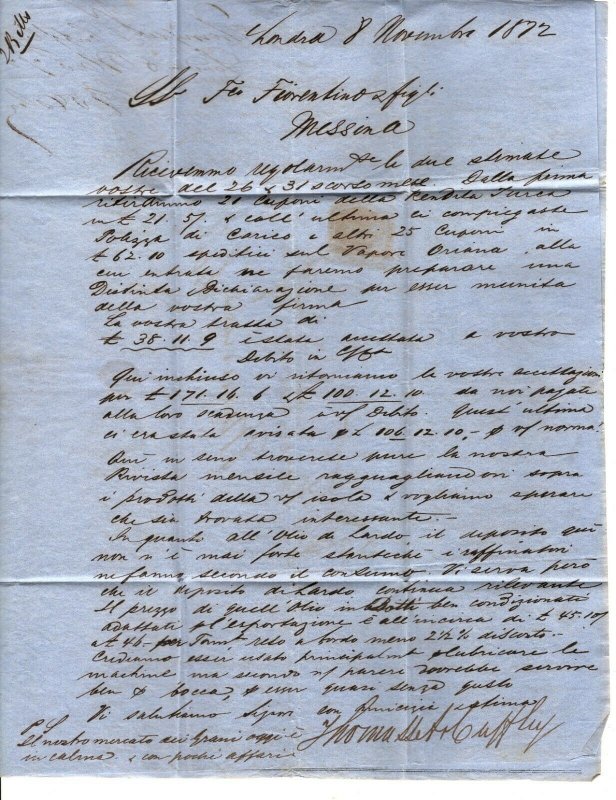 2 Bills
Londra 8 Novembre 1872
SS Fco Fiorentino & figli
Messina
Ricevemmo regolarmte le due stimate
vostre del 26 & 31 scorso mese. Dalla prima
ritirammo 21 Cuponi della Rendita Turca
in £ 21. 5/. & coll' ultima ci compiegaste
Polizza di Carico e altri 25 Cuponi in
£ 62.10 spediti sul Vapore Oriana, alla
cui entrata ne faremo preparare una
Distinta & Dichiarazione per esser munita
della vostra firma
La vostra tratta di
£ 38.11.9 è stata accettata a vostro
Debito in
Qui inchiuso vi ritorniamo le vostre accettazioni
per £ 171.16.6 & £ 100.12.10 da noi pagate
alla loro scadenza a v/ Debito. Quest' ultima
ci era stata avisata £ 106.12.10,- v/ norma!
Qui in seno troverete pure la nostra
Rivista mensile ragguagliandovi sopra
i prodotti della v/ isola & vogliamo sperare
che sia trovata interessante.-
In quanto all' Olio di Lardo, il deposito qui
non n'è mai forte stantechè i raffinatori
ne fanno secondo il consumo. Vi serva però
che il deposito di Lardo continua rilevante
Il prezzo di quell' Olio in Botti ben condizionate
adattati pl'esportazione è all' incirca di £ 45.10/
a £ 46.- per Tonnta reso a bordo meno 2½% disconto.-
Crediamo esser usato principalmt plubricare le
machine ma secondo n/ parere dovrebbe servire
ben bocca, esser quasi senza gusto
Vi salutiamo Signori con amicizia
P.S.
Il nostro mercato dei Grani oggi è
in calma & con pochi affari